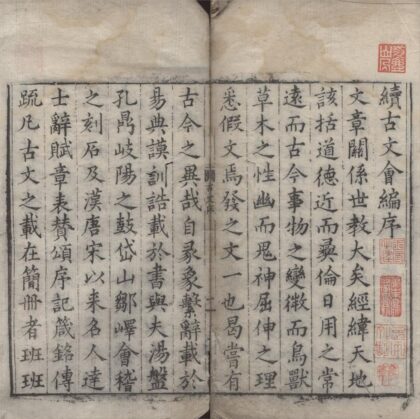 續古文會編序
文章關係世教大矣經緯天地
該括道德近而彞倫日用之常
遠而古今事物之變微而鳥獸
草木之性幽而鬼神屈伸之理
悉假文焉發之文一也曷嘗有
古今之異哉自彖象繫辭載於
易典謨訓誥載於書與夫湯盤
孔鼎岐陽之鼓岱山鄒嶧會稽
之刻石及漢唐宋以來名人達
士辭賦章表贊頌序記箴銘傳
疏凡古文之載在簡冊者班班